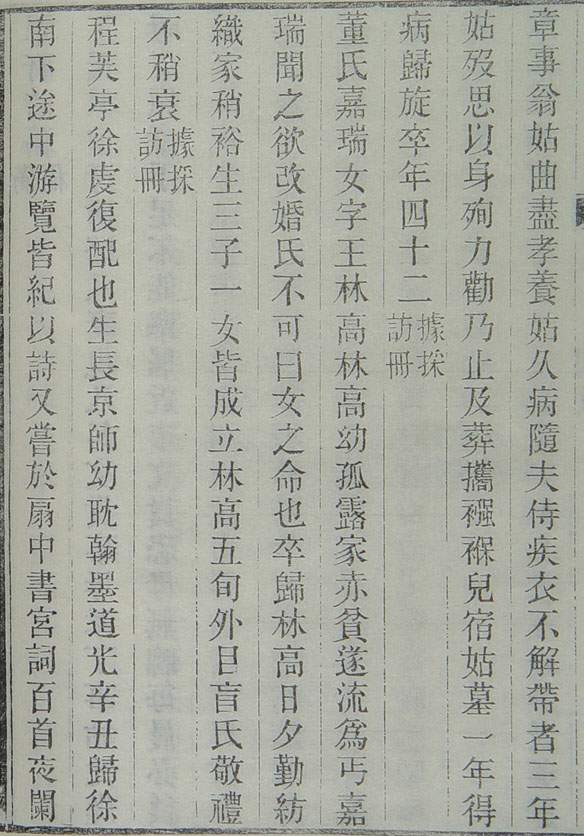 章事翁姑曲盡孝養姑久病隨夫侍疾衣不解帶者三年
姑歿思以身殉力勸乃止及葬攜襁褓兒宿姑墓一年得
病歸旋卒年四十二據採訪冊
董氏嘉瑞女字王林高林高幼孤露家赤貧遂流爲丐嘉
瑞聞之欲改婚氏不可曰女之命也卒歸林高日夕勤紡
織家稍裕生三子一女皆成立林高五旬外目盲氏敬禮
不稍衰據採訪冊
程芙亭徐虔復配也生長京師幼耽翰墨道光辛丑歸徐
南下途中游覽皆紀以詩又嘗於扇中書宮詞百首夜闌